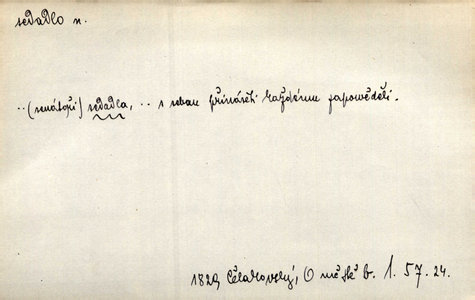 sedadlo n.
..(senátoři) sedadla, .. s sebau přinášeti každému zapowěděli.
1829 Čelakovský, O městě b. 1. 57. 24.